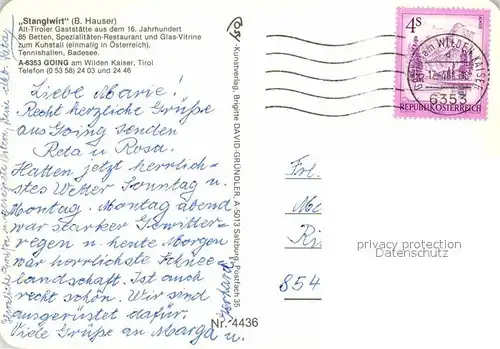 „Stanglwirt" (B. Hauser)
Alt-Tiroler Gaststätte aus dem 16. Jahrhundert
85 Betten, Spezialitäten-Restaurant und Glas-Vitrine
zum Kuhstall (einmalig in Österreich),
Tennishallen, Badesee.
A-6353 GOING am Wilden Kaiser, Tirol
Telefon (0 53 58) 24 03 und 24 46
Liebe Marie!
Recht herzliche Grüße
aus Going senden
Reta u. Rosa.
Hatten jetzt herrlich-
stes Wetter Sonntag u.
Montag. Montag abend
war starker Gewitter-
regen u. heute Morgen
war herrlichste Schnee
landschaft. Ist auch
recht schön. Wir sind
ausgerüstet dafür.
Viele Grüße an Marga u.
Gerhard
Kunstverlag, Brigitte DAVID-GRÜNDLER, A-5013 Salzburg, Postfach 35
Nr. 4436
4S
REPUBLIK ÖSTERREICH
am WILDEN KAISER
6353
Frl.
854
privacy protection